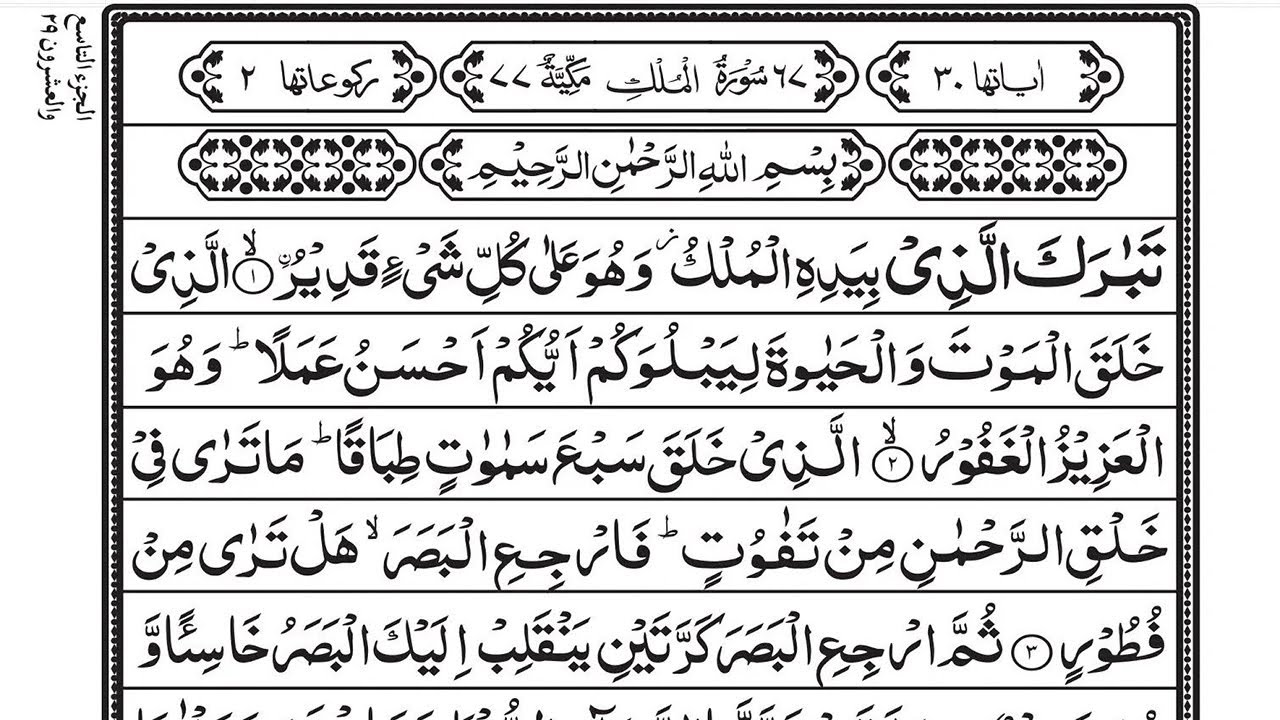 الجزء التاسع
والعشرون ٢٩
اٰیاتها ٣٠
٦٧ سُوْرَةُ الْمُلْكِ مَكِّیَّةٌ ٧٧
رکوعاتها ٢
بِسْمِ اللهِ الرَّحْمٰنِ الرَّحِیْمِ
تَبٰرَكَ الَّذِیْ بِیَدِهِ الْمُلْكُ ز وَهُوَ عَلٰی كُلِّ شَیْءٍ قَدِیْرُ ۣ ۙ﴿١﴾ الَّذِیْ
خَلَقَ الْمَوْتَ وَالْحَیٰوةَ لِیَبْلُوَكُمْ اَیُّكُمْ اَحْسَنُ عَمَلًا ؕ وَهُوَ
الْعَزِیْزُ الْغَفُوْرُ ۙ﴿٢﴾ الَّذِیْ خَلَقَ سَبْعَ سَمٰوٰتٍ طِبَاقًا ؕ مَا تَرٰی فِیْ
خَلْقِ الرَّحْمٰنِ مِنْ تَفٰوُتٍ ؕ فَارْجِعِ الْبَصَرَ ۙ هَلْ تَرٰی مِنْ
فُطُوْرٍ ﴿٣﴾ ثُمَّ ارْجِعِ الْبَصَرَ كَرَّتَیْنِ یَنْقَلِبْ اِلَیْكَ الْبَصَرُ خَاسِئًا وَّ